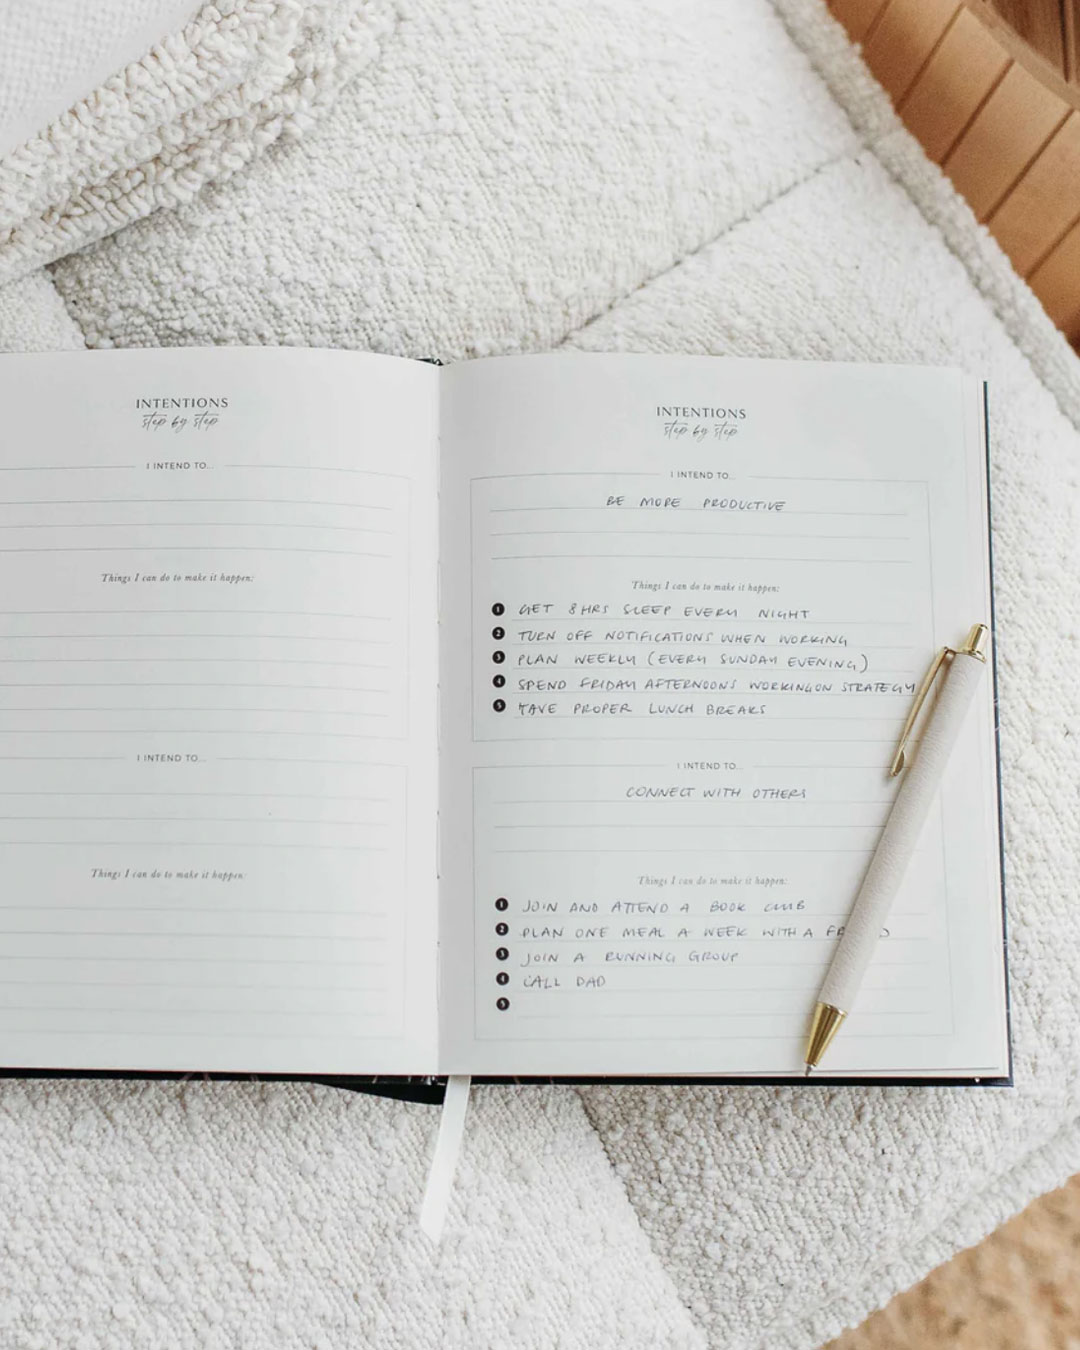 INTENTIONS
step by step
I INTEND TO...
Things I can do to make it happen:
I INTEND TO...
Things I can do to make it happen:
INTENTIONS
step by step
I INTEND TO...
BE MORE PRODUCTIVE
Things I can do to make it happen:
1 GET 8HRS SLEEP EVERY NIGHT
2 TURN OFF NOTIFICATIONS WHEN WORKING
3 PLAN WEEKLY (EVERY SUNDAY EVENING)
4 SPEND FRIDAY AFTERNOONS WORKING ON STRATEGY
5 TAKE PROPER LUNCH BREAKS
I INTEND TO...
CONNECT WITH OTHERS
Things I can do to make it happen:
1 JOIN AND ATTEND A BOOK CLUB
2 PLAN ONE MEAL A WEEK WITH A
3 JOIN A RUNNING GROUP
4 CALL DAD
5